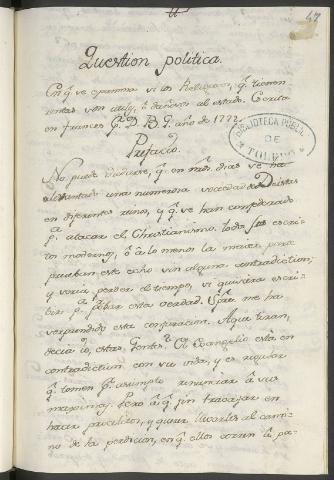 47
Question politica.
En q.e se examina si los Religiosos, q.e tienen
rentas son utiles, ò dañosos al estado. Escrita
en frances P.r D. B. G. año de 1772.
BIBLIOTECA PUBLICA
DE
TOLEDO
Prefacio.
No puede dudarse, q.e en nros. dias se ha
levantado una numerosa sociedad de Deistas
en diferentes reinos, y q.e se han conjurado
p.a atacar el Christianismo. todos los escri-
tos modernos, ò à lo menos la maior parte
prueban este echo sin alguna contradiction;
y seria perder el tiempo, si quisiera escri-
bir p.a probar esta verdad. Sipre. me ha
sorprendido esta conjuracion. A que tiran,
decia io, estas Gentes? El Evangelio està en
contradiction con su vida, y es regular
q.e tomen p.r asumpto renunciar à sus
maximas. Pero à q.e fin trabajar en
hacer proselitos, y querer llevarles al cami-
no de la perdicion, en q.e ellos corren à pa-